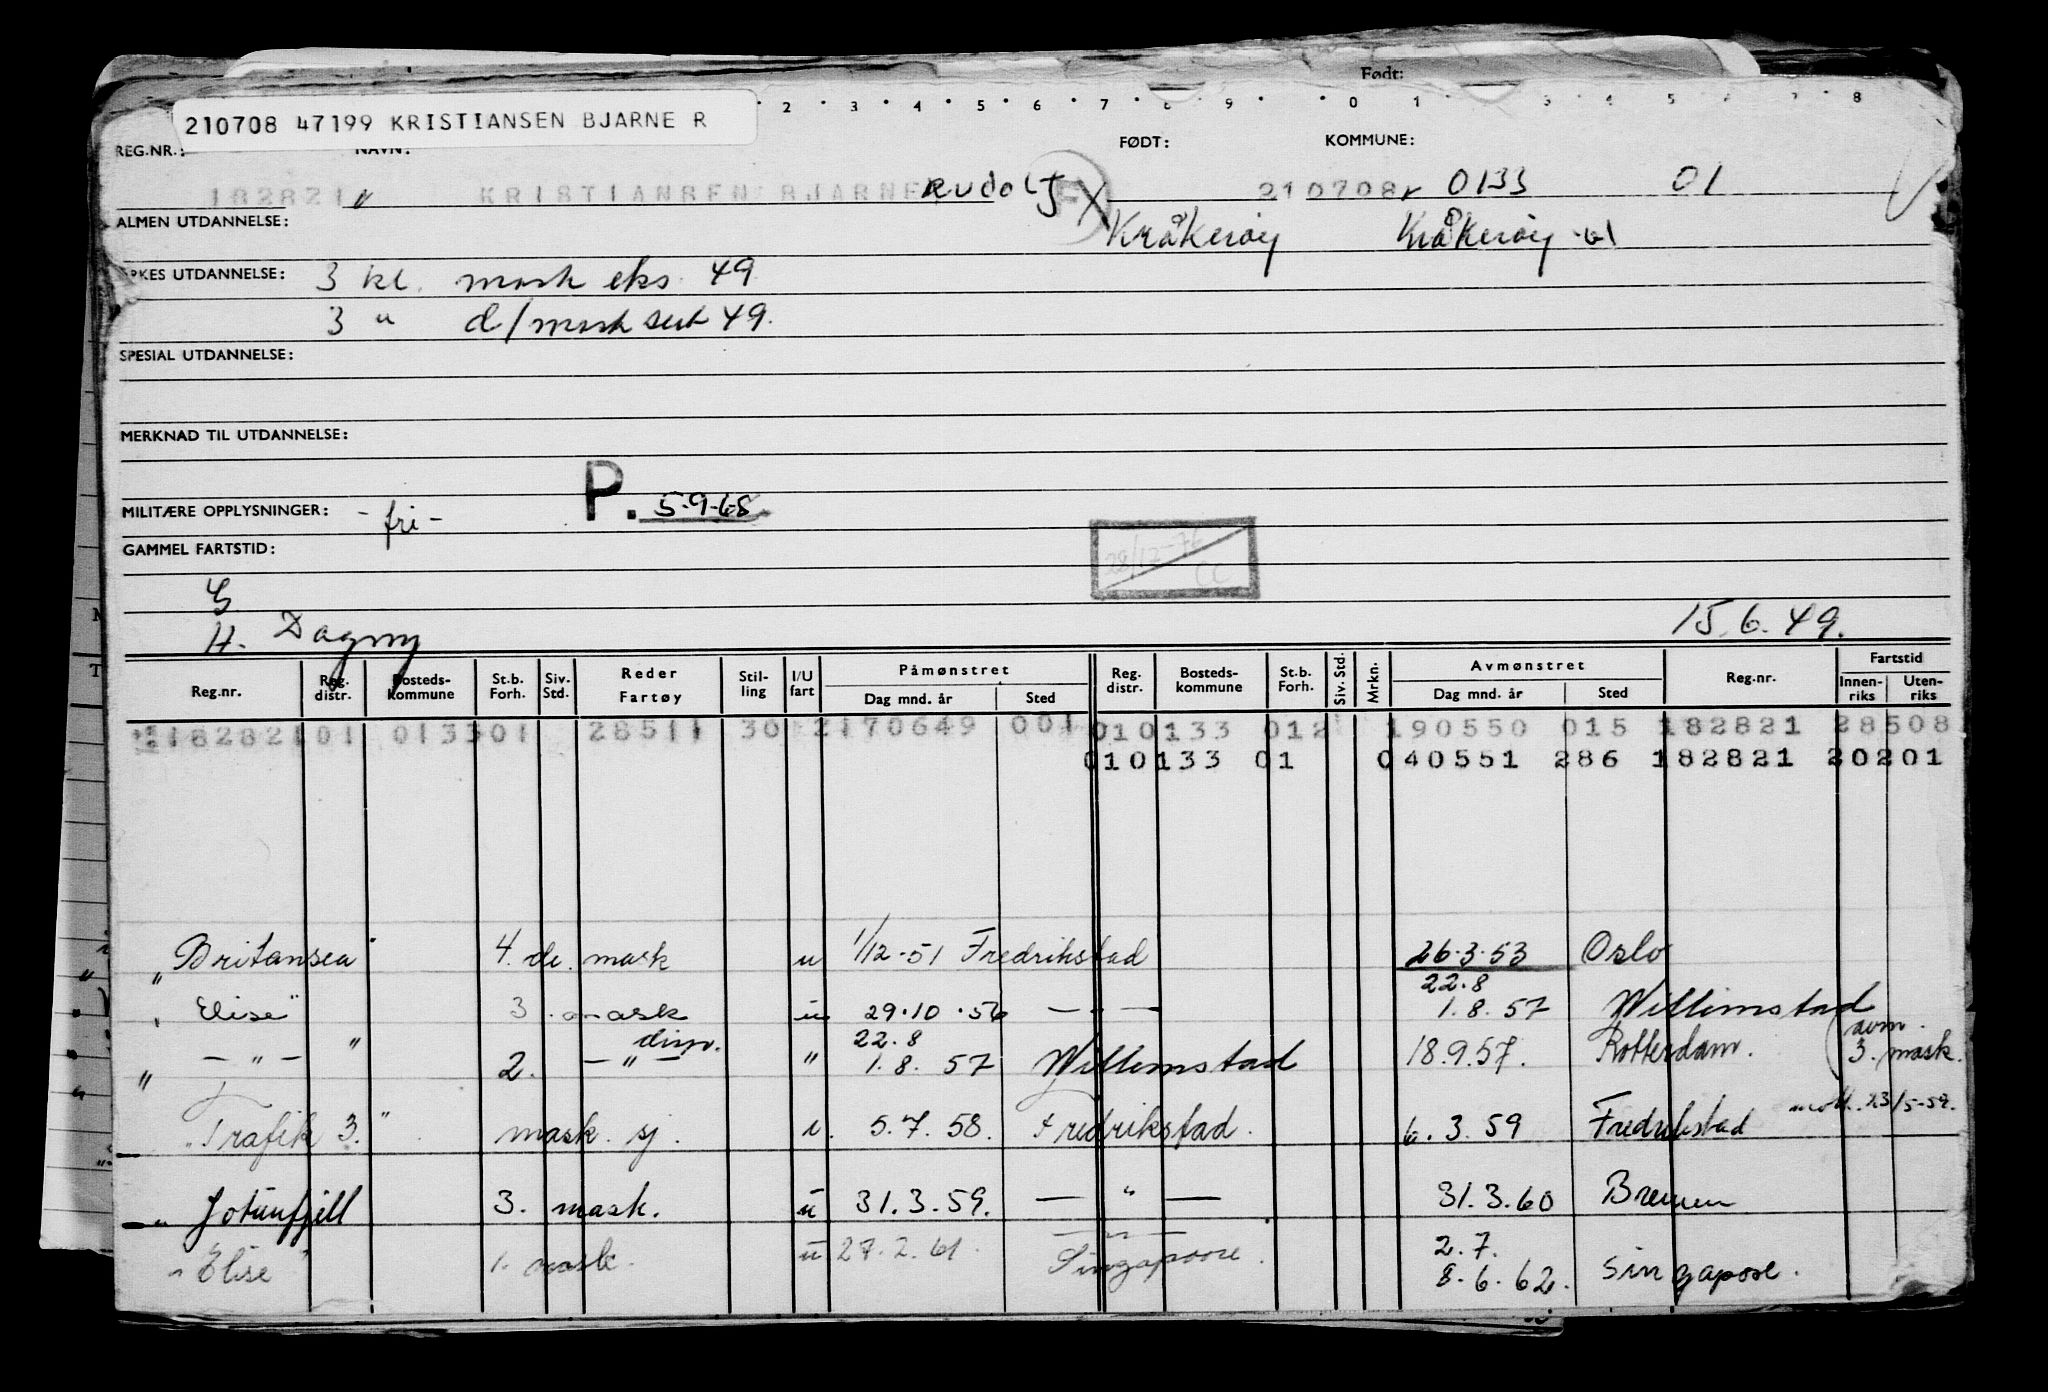 Født:
2 3 4 5 6 7 8 9 0 1 3 4 5 6 7 8
210708 47199 KRISTIANSEN BJARNE R
REG.NR.: NAVN: FØDT: KOMMUNE:
182821 " KRISTIANSEN BJARNE Rudolf 210708 0133 01
ALMEN UTDANNELSE: Kråkerøy Kråkerøy -61
YRKES UTDANNELSE: 3 kl. mask eks. 49
3 " d/mask sert 49.
SPESIAL UTDANNELSE:
MERKNAD TIL UTDANNELSE:
MILITÆRE OPPLYSNINGER: -fri- P. 5-9-68
GAMMEL FARTSTID: 22/12-76 CC
G
H. Dagny 15.6.49.
Reg.nr. Reg. distr. Bosteds-kommune St.b. Forh. Siv. Std. Reder Fartøy Stil-ling I/U fart Påmønstret Dag mnd. år Sted Reg. distr. Bosteds-kommune St.b. Forh. Siv. Std. Mrkn. Avmønstret Dag mnd. år Sted Reg.nr. Fartstid Innen-riks Uten-riks
182821 01 0133 01 28511 30 2 170649 001 01 0133 012 190550 015 182821 28508
01 0133 01 040551 286 182821 20201
" Britansea" 4. de. mask u 1/12-51 Fredrikstad 26.3.53 Oslo
22.8
" Elise" 3. mask u 29.10.56 — " — 1.8.57 Willemstad
disp. 22.8 (avm.
" — " — " 2. — " — " 1.8.57 Willemstad 18.9.57. Rotterdam. 3. mask.
mott. 23/5-59.
"Trafik 3." mask. sj. u. 5.7.58. Fredrikstad. 6.3.59 Fredrikstad
" Jotunfjell 3. mask. u 31.3.59. — " — 31.3.60 Bremen
— " — 2.7.
" Elise" 1. mask. u 27.2.61. Singapore. 8.6.62. Singapore.